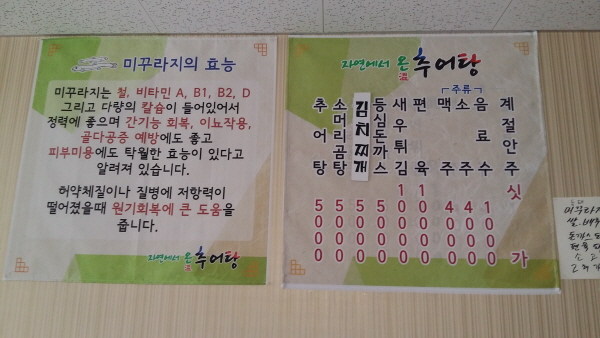 미꾸라지의 효능
미꾸라지는 철, 비타민 A, B1, B2, D
그리고 다량의 칼슘이 들어있어서
정력에 좋으며 간기능 회복, 이뇨작용,
골다공증 예방에도 좋고
피부미용에도 탁월한 효능이 있다고
알려져 있습니다.
허약체질이나 질병에 저항력이
떨어졌을때 원기회복에 큰 도움을
줍니다.
자연에서 온 추어탕
자연에서 온 추어탕
추어탕 5000
소머리곰탕 5000
김치찌개 5000
등심돈까스 5000
새우튀김 10000
편육 10000
주류
맥주 4000
소주 4000
음료수 1000
계절안주 싯가
미꾸라지
쌀.배추